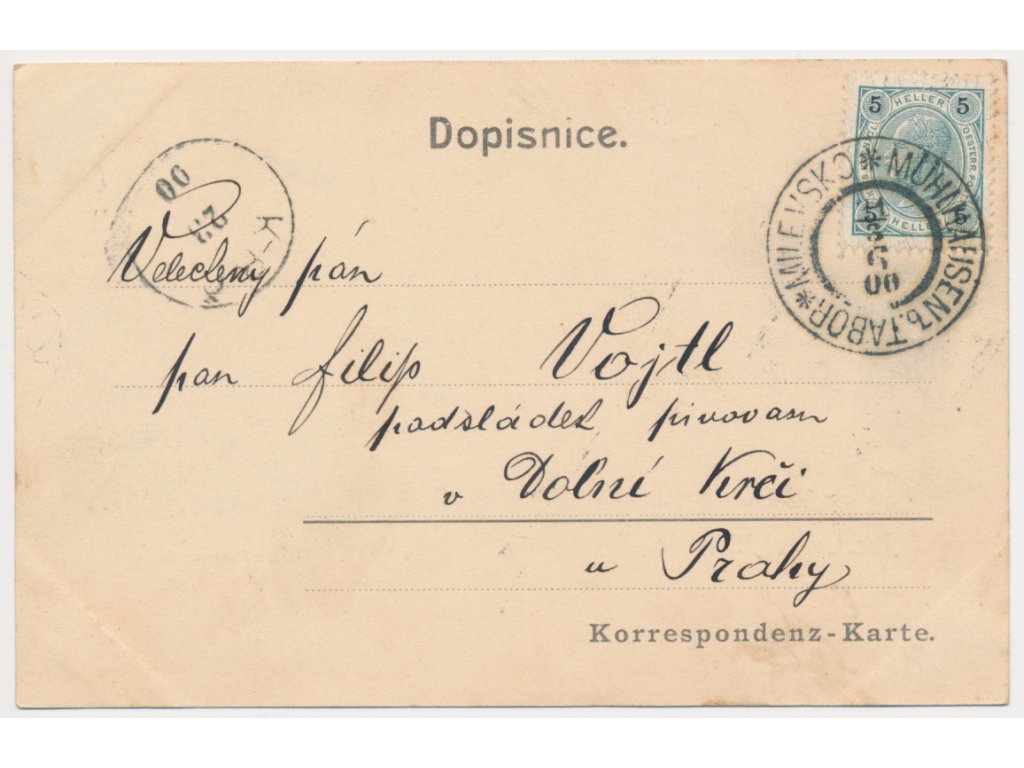 Dopisnice.
5 HELLER 5
MÜHLHAUSEN b. TABOR * MILEVSKO *
00
00
Velectený pán
pan Filip Vojtl
podsládek pivovaru
v Dolní Krči
u Prahy
Korrespondenz-Karte.